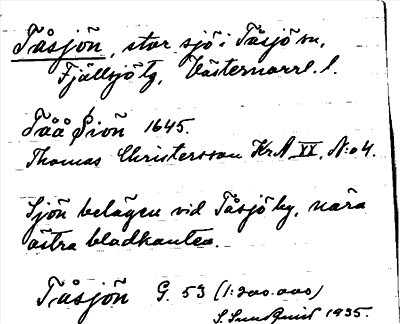 Tåsjön, stor sjö i Tåsjö sn,
Fjällsjö tg, Västernorrl. l.
Tåå Siön 1645.
Thomas Christersson Kr.A. XX, N:o 4.
Sjön belägen vid Tåsjö by, nära
östra bladkanten.
Tåsjön G. 53 (1:200.000)
S. Sundquist 1935.